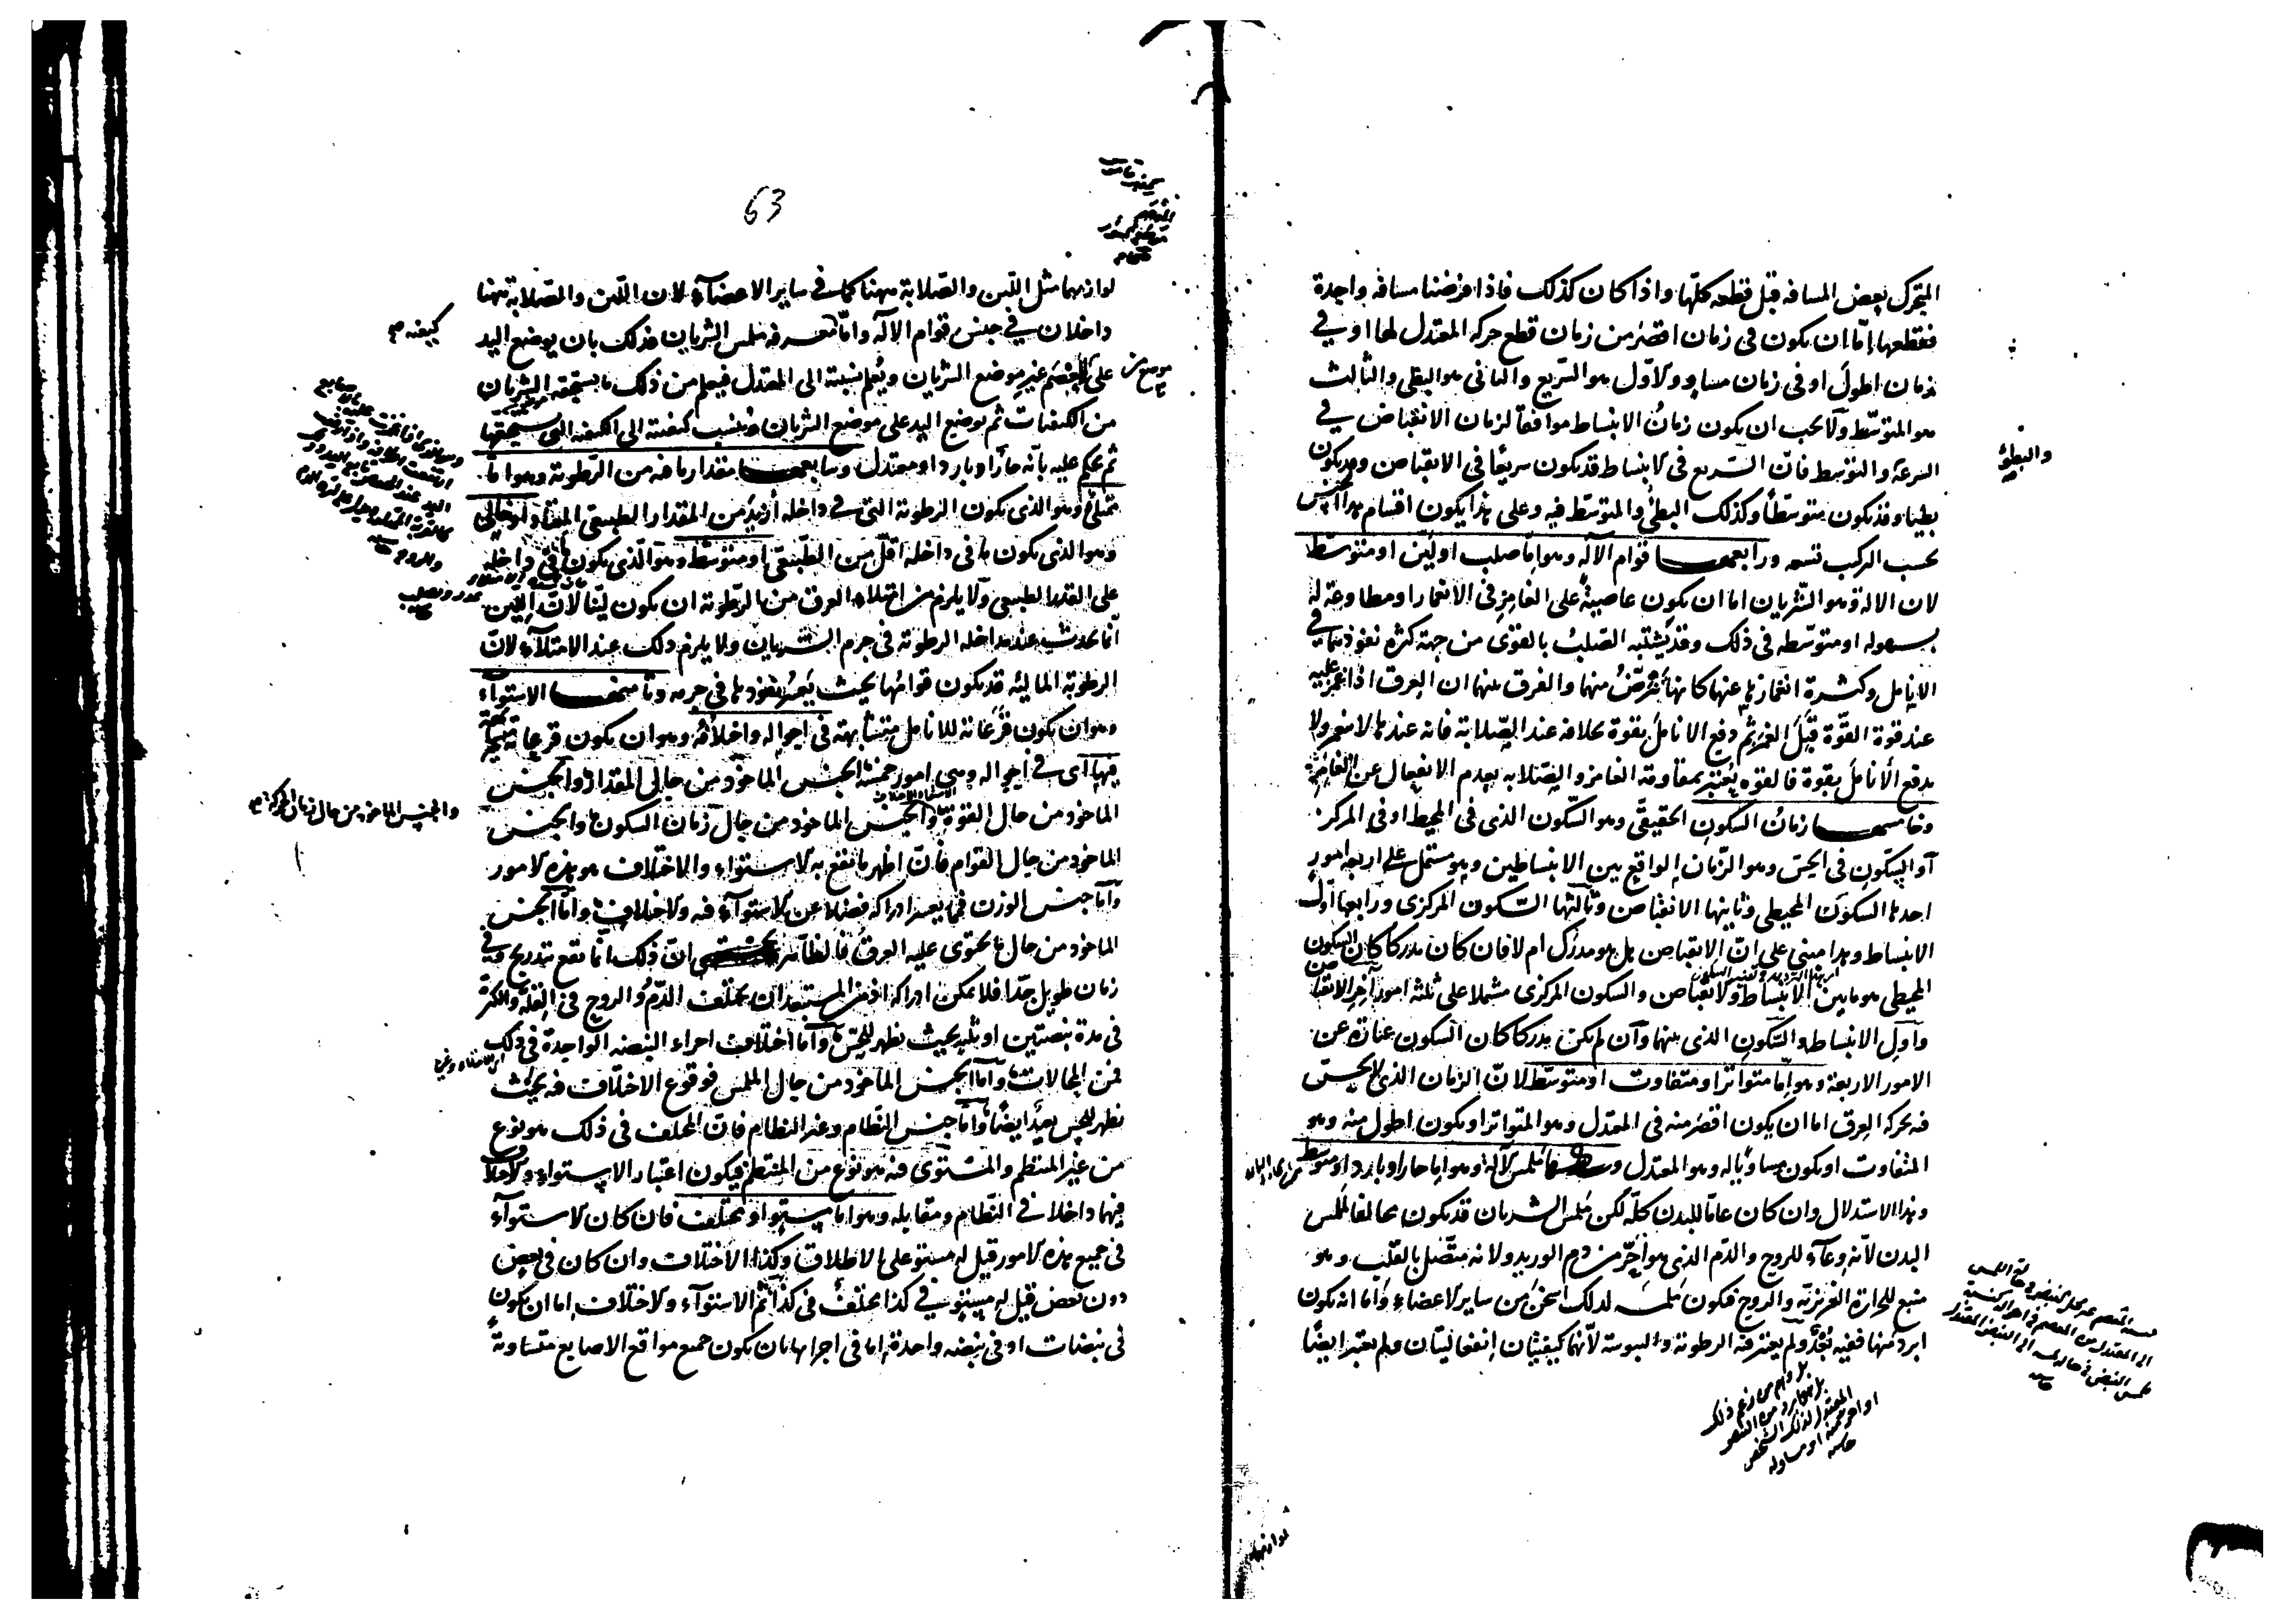 المتحرك بعض المسافه قبل قطعه كلها واذا كان كذلك فاذا فرضنا مسافه واحدة
فقطعها اما ان يكون فى زمان اقصر من زمان قطع حركه المعتدل لها او في
زمان اطول او فى زمان مساو والاول هو السريع والثانى هو البطى والثالث
هو المتوسط ولا يجب ان يكون زمان الانبساط موافقا لزمان الانقباض في
السرعة والتوسط فان السريع فى الانبساط قد يكون سريعا فى الانقباض وقد يكون
والبطؤ
بطيئا وقد يكون متوسطا وكذلك البطئ والمتوسط فيه وعلى هذا يكون اقسام هذا الجنس
بحسب التركيب تسعه ورابعها قوام الآله وهو اما صلب او لين او متوسط
لان الالة وهو الشريان اما ان يكون عاصية على الغامز فى الانغمار او مطاوعة له
بسهوله او متوسطه فى ذلك وقد يشتبه الصلب بالقوى من جهة كثرة نفوذهما في
الانامل وكثرة انغمازها عنهما والفرق بينهما ان العرق اذا غمز عليه
عند قوة القوة قبل الغمز ثم دفع الانامل بقوة بخلافه عند الصلابة فانه عندها لا ينغمز ولا
يدفع الانامل بقوة فالقوه يعتبر بمقاومة الغامز والصلابه بعدم الانفعال عن الغامز
وخامسها زمان السكون الحقيقى وهو السكون الذى فى المحيط او فى المركز
او السكون فى الحس وهو الزمان الواقع بين الانبساطين وهو مشتمل على اربعة امور
احدها السكون المحيطى وثانيها الانقباض وثالثها السكون المركزى ورابعها اول
الانبساط وهذا مبنى على ان الانقباض هل هو مدرك ام لا فان كان مدركا كان السكون
المحيطى هو ما بين الانبساط والانقباض والسكون المركزى مشتملا على ثلثه امور آخر الانقباض
واول الانبساط والسكون الذى بينهما وان لم يكن مدركا كان السكون عبارة عن
الامور الاربعة وهو اما متواتر او متفاوت او متوسط لان الزمان الذى لا يحس
فيه بحركة العرق اما ان يكون اقصر منه فى المعتدل وهو المتواتر او يكون اطول منه وهو
المتفاوت او يكون مساويا له وهو المعتدل وسادسها ملمس الآله وهو اما حار او بارد او متوسط
وهذا الاستدلال وان كان عاما للبدن كله لكن ملمس الشريان قد يكون مخالفا لملمس
البدن لانه وعاء للروح والدم الذى هو احر من دم الوريد ولانه متصل بالقلب وهو
منبع للحرارة الغريزية والروح فيكون ملمسه لذلك اسخن من ساير الاعضاء واما انه يكون
ابرد منها ففيه بعد ولم يعتبر فيه الرطوبة واليبوسة لانهما كيفيتان انفعاليتان ولم يعتبر ايضا
لوازمها
63
لوازمهما مثل اللين والصلابة ههنا كما فى ساير الاعضاء لان اللين والصلابة ههنا
داخلان في جنس قوام الآله واما معرفه ملمس الشريان فذلك بان يوضع اليد
على موضع غير موضع الشريان ويعلم نسبته الى المعتدل فيعلم من ذلك ما يستحقه الشريان
من الكيفيات ثم يوضع اليد على موضع الشريان وينسب كيفيته الى الكيفيه التى يستحقها
ثم يحكم عليه بانه حار او بارد او معتدل وسابعها مقدار ما فيه من الرطوبة وهو اما
ممتلئ وهو الذى يكون الرطوبة التى فى داخله ازيد من المقدار الطبيعى المعتاد او خالى
وهو الذى يكون ما فى داخله اقل من الطبيعى او متوسط وهو الذى يكون ما فى داخله
على القدر الطبيعى ولا يلزم من امتلاء العرق من الرطوبة ان يكون لينا لان اللين
انما يحدث عند مداخله الرطوبة فى جرم الشريان ولا يلزم ذلك عند الامتلاء لان
الرطوبة المالئه قد يكون قوامها بحيث يعسر نفوذها فى جرمه وثامنها الاستواء
وهو ان يكون قرعاته للانامل متشابهة فى احواله واختلافه وهو ان يكون قرعاته مختلفة
فيها اى فى احواله وهى امور خمسة الجنس الماخوذ من حال المقدار والجنس
والجنس الماخوذ من حال زمان الحركة
الماخوذ من حال القوة والجنس الماخوذ من حال زمان السكون والجنس
الماخوذ من حال القوام فان اظهر ما يقع به الاستواء والاختلاف هو هذه الامور
واما جنس الوزن فيعسر ادراكه فضلا عن الاستواء فيه والاختلاف واما الجنس
الماخوذ من حال ما يحتوى عليه العرق فالظاهر ان ذلك انما يقع بتدريج وفى
زمان طويل جدا فلا يمكن ادراكه اذ من المستبعد ان يختلف الدم والروح فى القلة والكثرة
فى مدة نبضتين او ثلثه بحيث يظهر للحس واما اختلاف اجزاء النبضه الواحدة فى ذلك
فمن المحالات واما الجنس الماخوذ من حال الملمس فوقوع الاختلاف فيه بحيث
يظهر للحس بعيد ايضا واما جنس النظام وعدم النظام فان المختلف فى ذلك هو نوع
من غير المنتظم والمستوى فيه هو نوع من المنتظم فيكون اعتبار الاستواء والاختلاف
فيهما داخلا فى النظام ومقابله وهو اما مستو او مختلف فان كان الاستواء
فى جميع هذه الامور قيل له مستو على الاطلاق وكذا الاختلاف وان كان فى بعض
دون بعض قيل له مستو فى كذا مختلف فى كذا ثم الاستواء والاختلاف اما ان يكون
فى نبضات او فى نبضه واحدة اما فى اجزائها بان يكون جميع مواقع الاصابع متساوية